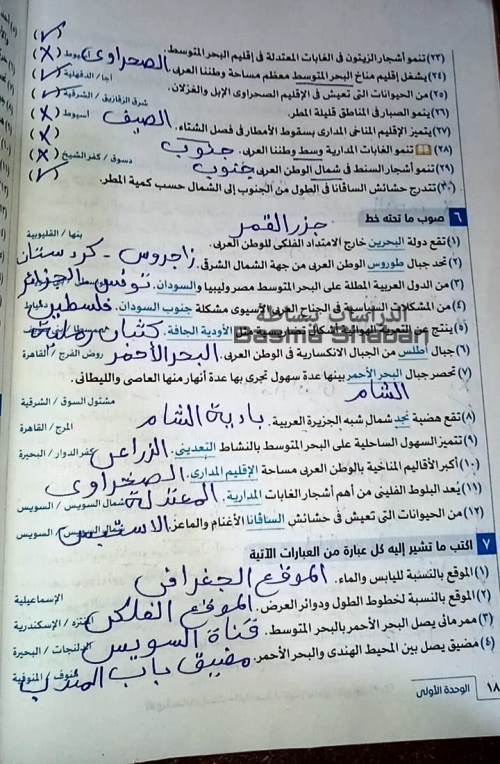 (٢٣) تنمو أشجار الزيتون فى الغابات المعتدلة فى إقليم البحر المتوسط. (✓)
(٢٤) يشغل إقليم مناخ البحر المتوسط معظم مساحة وطننا العربى. الصحراوى أسيوط (X)
(٢٥) من الحيوانات التى تعيش فى الإقليم الصحراوى الإبل والغزلان. أجا / الدقهلية (✓)
(٢٦) ينمو الصبار فى المناطق قليلة المطر. شرق الزقازيق / الشرقية (✓)
(٢٧) يتميز الإقليم المناخى المدارى بسقوط الأمطار فى فصل الشتاء. الصيف أسيوط (X)
(٢٨) تنمو الغابات المدارية وسط وطننا العربى. جنوب (X)
(٢٩) تنمو أشجار السنط فى شمال الوطن العربى جنوب دسوق / كفر الشيخ (X)
(٣٠) تتدرج حشائش السافانا فى الطول من الجنوب إلى الشمال حسب كمية المطر. (✓)
٦ صوب ما تحته خط
(١) تقع دولة البحرين خارج الامتداد الفلكى للوطن العربى. جزر القمر بنها / القليوبية
(٢) تحد جبال طوروس الوطن العربى من جهة الشمال الشرقى. زاجروس - كردستان
(٣) من الدول العربية المطلة على البحر المتوسط مصر وليبيا والسودان. تونس الجزائر
(٤) من المشكلات السياسية فى الجناح العربى الآسيوى مشكلة جنوب السودان. فلسطين
(٥) ينتج عن التعرية الهوائية أشكال تضاريسية مثل الأودية الجافة. كثبان رملية
(٦) جبال أطلس من الجبال الانكسارية فى الوطن العربى. البحر الأحمر روض الفرج / القاهرة
(٧) تحصر جبال البحر الأحمر بينها عدة سهول تجرى بها عدة أنهار منها العاصى والليطانى.
الشام مشتول السوق / الشرقية
(٨) تقع هضبة نجد شمال شبه الجزيرة العربية. بادية الشام المرج / القاهرة
(٩) تتميز السهول الساحلية على البحر المتوسط بالنشاط التعدينى. الزراعى كفر الدوار / البحيرة
(١٠) أكبر الأقاليم المناخية بالوطن العربى مساحة الإقليم المدارى. الصحراوى
(١١) يُعد البلوط الفلينى من أهم أشجار الغابات المدارية. المعتدلة شمال السويس / السويس
(١٢) من الحيوانات التى تعيش فى حشائش السافانا الأغنام والماعز. الاستبس شمال السويس / السويس
٧ اكتب ما تشير إليه كل عبارة من العبارات الآتية
(١) الموقع بالنسبة لليابس والماء. الموقع الجغرافى
(٢) الموقع بالنسبة لخطوط الطول ودوائر العرض. الموقع الفلكى الإسماعيلية
(٣) ممر مائى يصل البحر الأحمر بالبحر المتوسط. قناة السويس المنتزه / الإسكندرية
(٤) مضيق يصل بين المحيط الهندى والبحر الأحمر. مضيق باب المندب الدلنجات / البحيرة
منوف / المنوفية
١٨ الوحدة الأولى
الدراسات ببساطة
Basma Shaban